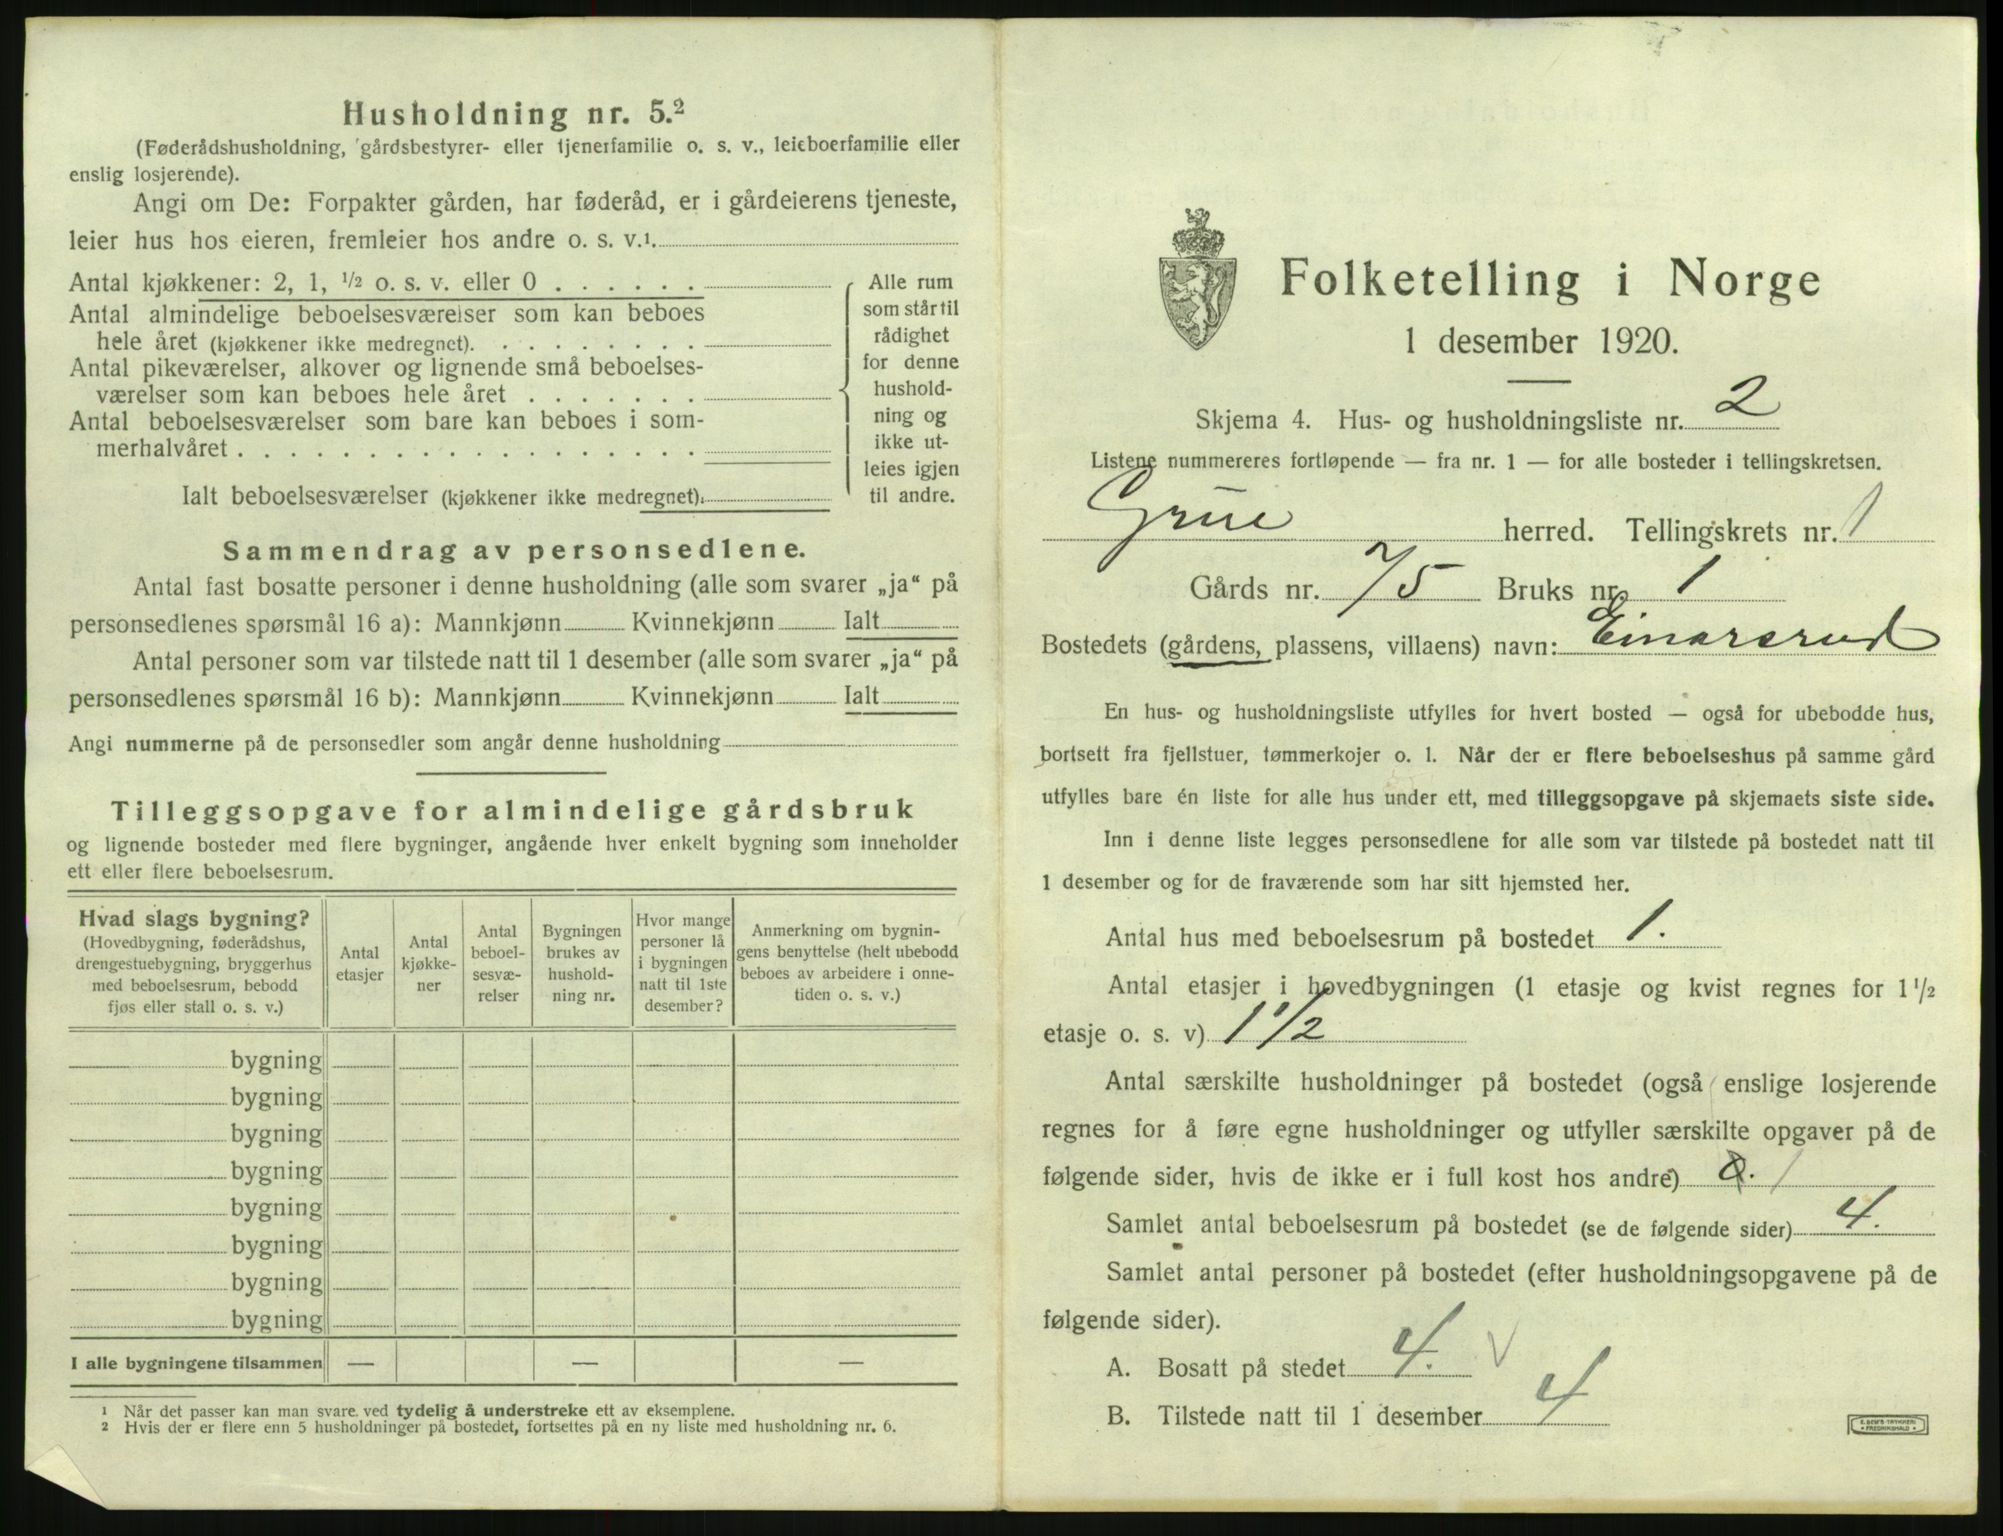 Husholdning nr. 5.²
(Føderådshusholdning, gårdsbestyrer- eller tjenerfamilie o. s. v., leieboerfamilie eller
enslig losjerende).
Angi om De: Forpakter gården, har føderåd, er i gårdeierens tjeneste,
leier hus hos eieren, fremleier hos andre o. s. v.¹.
Antal kjøkkener: 2, 1, ½ o. s. v. eller 0 . . . . . .
Antal almindelige beboelsesværelser som kan beboes
hele året (kjøkkener ikke medregnet). . . . . . . . .
Antal pikeværelser, alkover og lignende små beboelses-
værelser som kan beboes hele året . . . . . . .
Antal beboelsesværelser som bare kan beboes i som-
merhalvåret . . . . . . . . . . . . . . . . . .
Ialt beboelsesværelser (kjøkkener ikke medregnet).
Alle rum
som står til
rådighet
for denne
hushold-
ning og
ikke ut-
leies igjen
til andre.
Sammendrag av personsedlene.
Antal fast bosatte personer i denne husholdning (alle som svarer „ja“ på
personsedlenes spørsmål 16 a): Mannkjønn Kvinnekjønn Ialt
Antal personer som var tilstede natt til 1 desember (alle som svarer „ja“ på
personsedlenes spørsmål 16 b): Mannkjønn Kvinnekjønn Ialt
Angi nummerne på de personsedler som angår denne husholdning
Tilleggsopgave for almindelige gårdsbruk
og lignende bosteder med flere bygninger, angående hver enkelt bygning som inneholder
ett eller flere beboelsesrum.
Hvad slags bygning?
(Hovedbygning, føderådshus,
drengestuebygning, bryggerhus
med beboelsesrum, bebodd
fjøs eller stall o. s. v.)
Antal
etasjer
Antal
kjøkke-
ner
Antal
beboel-
sesvæ-
relser
Bygningen
brukes av
hushold-
ning nr.
Hvor mange
personer lå
i bygningen
natt til 1ste
desember?
Anmerkning om bygnin-
gens benyttelse (helt ubebodd
beboes av arbeidere i onne-
tiden o. s. v.)
bygning
bygning
bygning
bygning
bygning
bygning
bygning
bygning
I alle bygningene tilsammen — — —
¹ Når det passer kan man svare ved tydelig å understreke ett av eksemplene.
² Hvis der er flere enn 5 husholdninger på bostedet, fortsettes på en ny liste med husholdning nr. 6.
Folketelling i Norge
1 desember 1920.
Skjema 4. Hus- og husholdningsliste nr. 2
Listene nummereres fortløpende — fra nr. 1 — for alle bosteder i tellingskretsen.
Grue herred. Tellingskrets nr. 1
Gårds nr. 75 Bruks nr. 1
Bostedets (gårdens, plassens, villaens) navn: Einarsrud
En hus- og husholdningsliste utfylles for hvert bosted — også for ubebodde hus,
bortsett fra fjellstuer, tømmerkojer o. l. Når der er flere beboelseshus på samme gård
utfylles bare én liste for alle hus under ett, med tilleggsopgave på skjemaets siste side.
Inn i denne liste legges personsedlene for alle som var tilstede på bostedet natt til
1 desember og for de fraværende som har sitt hjemsted her.
Antal hus med beboelsesrum på bostedet 1.
Antal etasjer i hovedbygningen (1 etasje og kvist regnes for 1½
etasje o. s. v) 1 1/2
Antal særskilte husholdninger på bostedet (også enslige losjerende
regnes for å føre egne husholdninger og utfyller særskilte opgaver på de
følgende sider, hvis de ikke er i full kost hos andre) 1
Samlet antal beboelsesrum på bostedet (se de følgende sider) 4.
Samlet antal personer på bostedet (efter husholdningsopgavene på de
følgende sider).
A. Bosatt på stedet 4. V
B. Tilstede natt til 1 desember 4